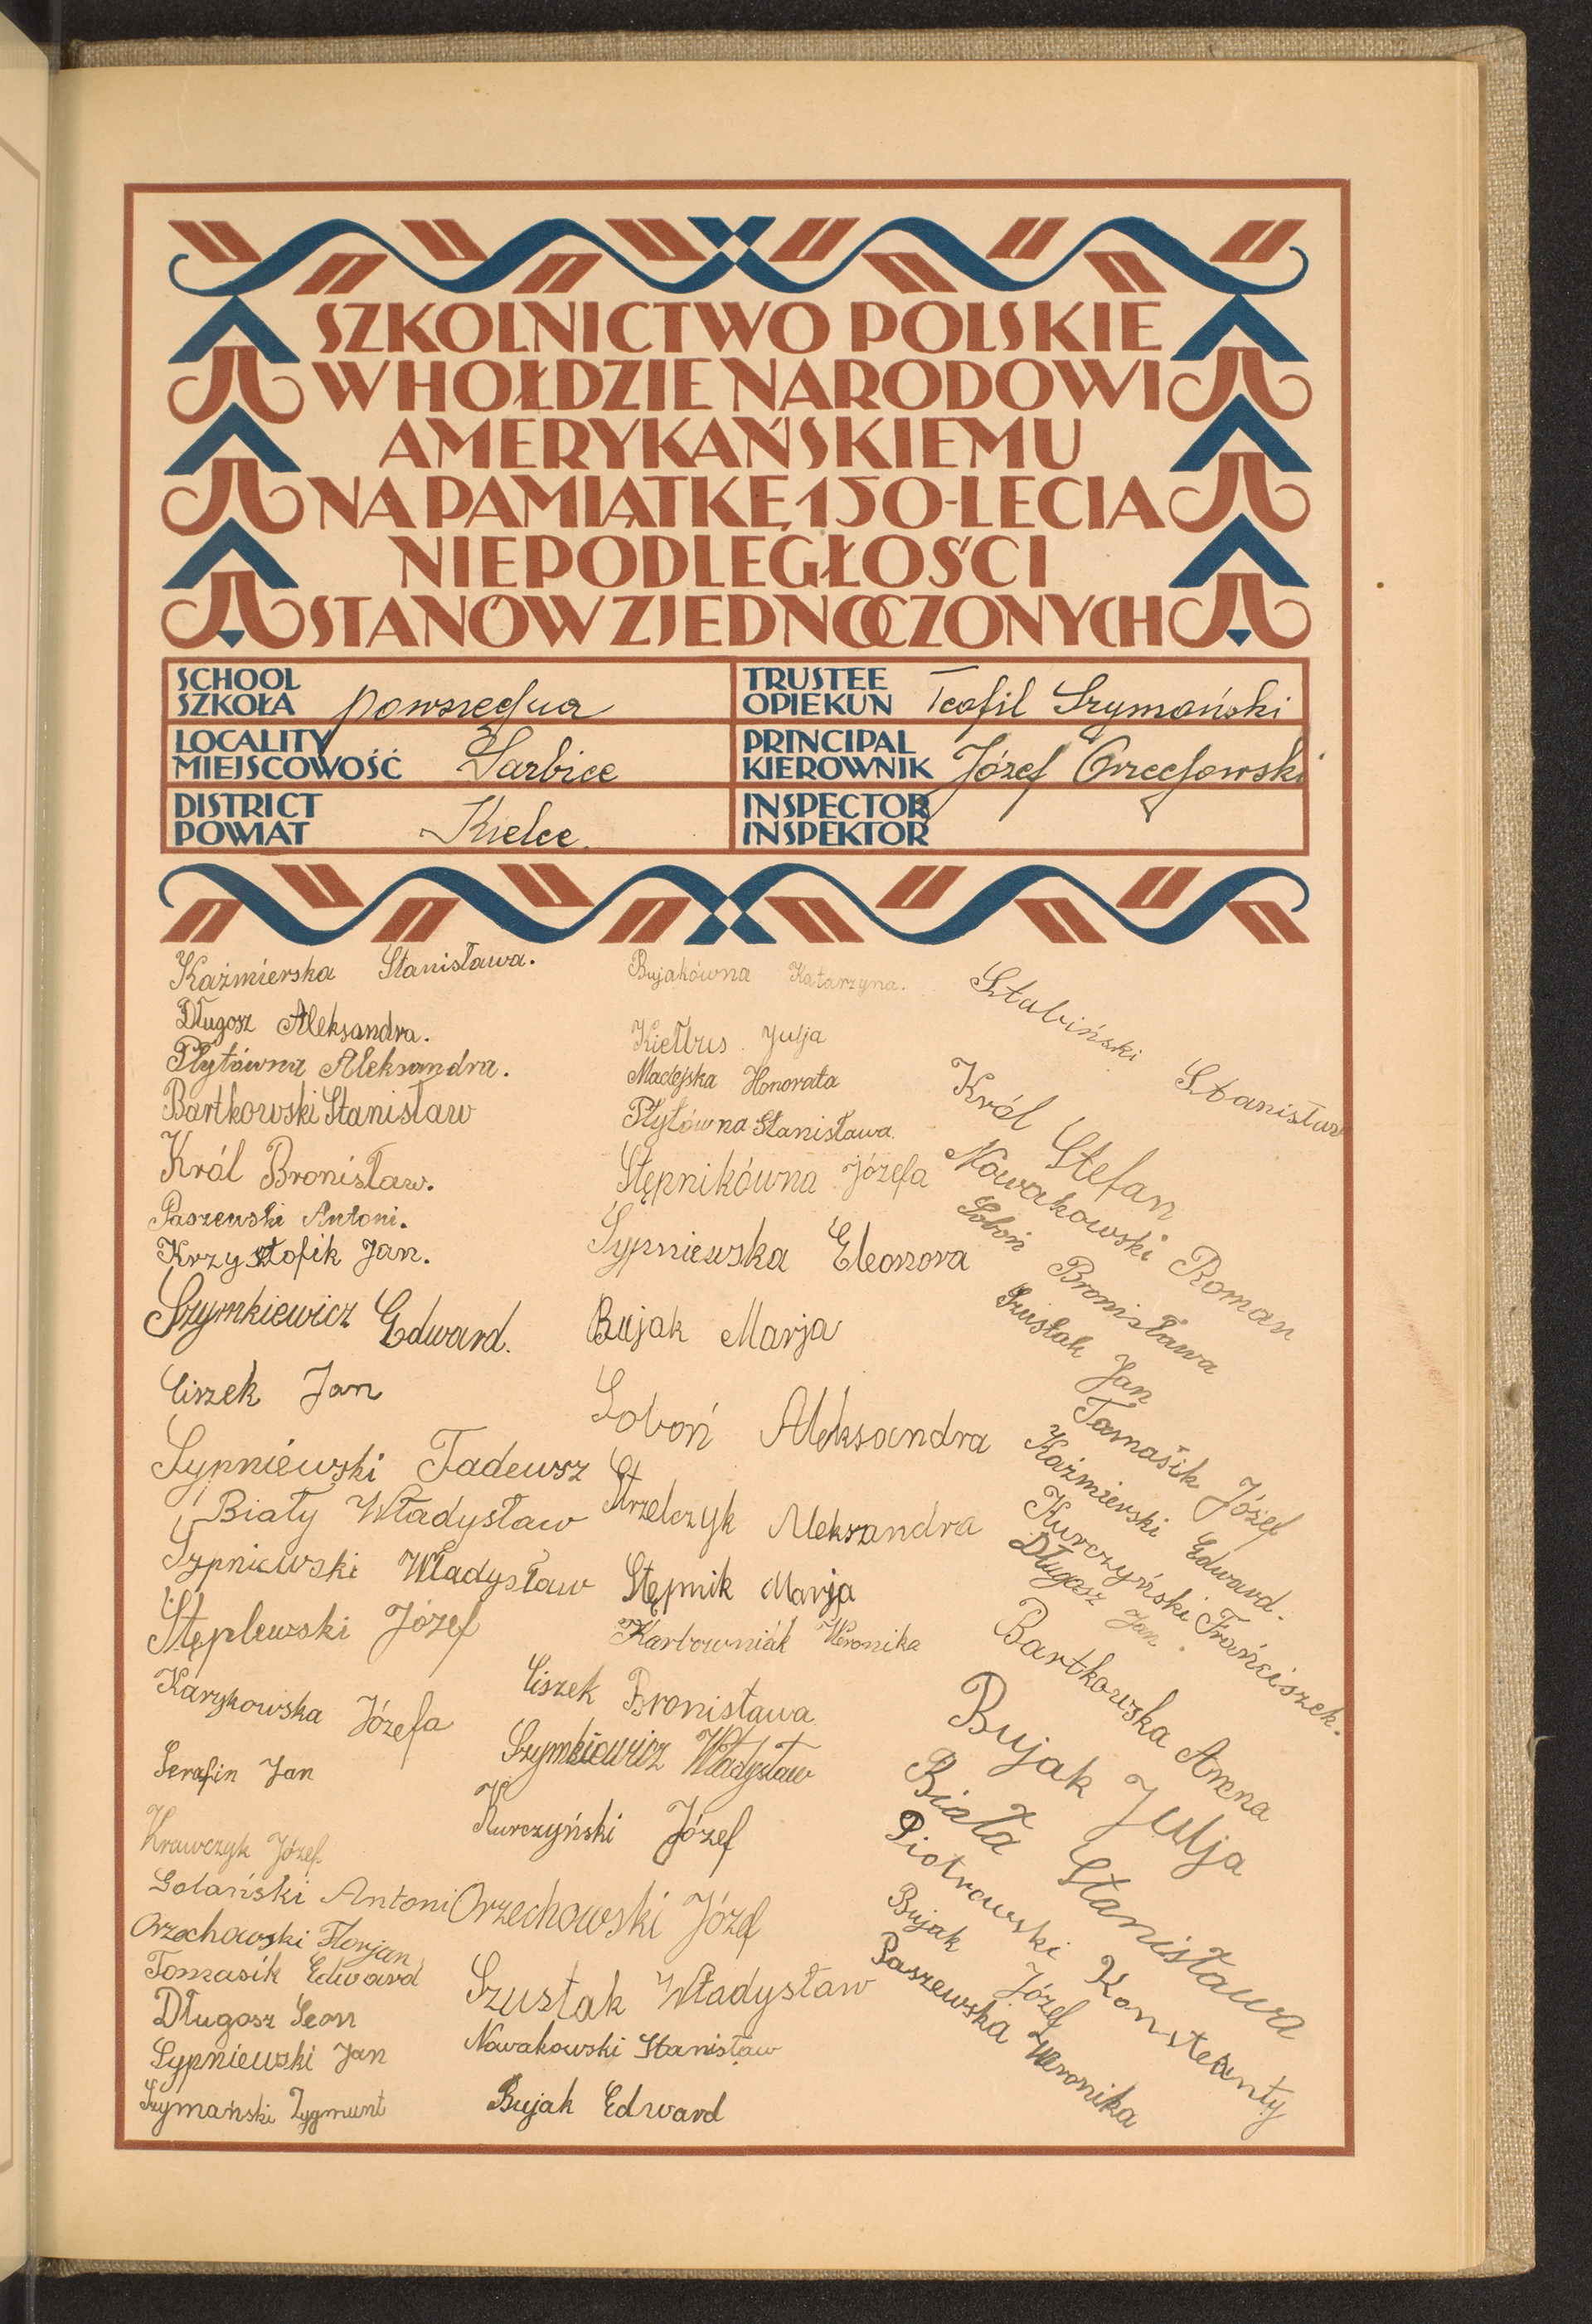 SZKOLNICTWO POLSKIE
W HOŁDZIE NARODOWI
AMERYKAŃSKIEMU
NA PAMIĄTKĘ 150-LECIA
NIEPODLEGŁOŚCI
STANÓW ZJEDNOCZONYCH
SCHOOL
SZKOŁA powszechna
TRUSTEE
OPIEKUN Teofil Szymański
LOCALITY
MIEJSCOWOŚĆ Sarbice
PRINCIPAL
KIEROWNIK Józef Orzechowski
DISTRICT
POWIAT Kielce.
INSPECTOR
INSPEKTOR
Kaźmierska Stanisława.
Długosz Aleksandra.
Płytówna Aleksandra.
Bartkowski Stanisław
Król Bronisław.
Paszewski Antoni.
Krzysztofik Jan.
Szymkiewicz Edward.
Ciszek Jan
Sypniewski Tadeusz
Biały Władysław
Sypniewski Władysław
Stęplewski Józef
Karykowska Józefa
Serafin Jan
Krawczyk Józef
Golański Antoni
Orzechowski Florjan
Tomasik Edward
Długosz Leon
Sypniewski Jan
Szymański Zygmunt
Bujakówna Katarzyna.
Kiełbus Julja
Madejska Honorata
Płytówna Stanisława.
Stępnikówna Józefa
Sypniewska Eleonora
Bujak Marja
Soboń Aleksandra
Strzelczyk Aleksandra
Stępnik Marja
Karbowniak Weronika
Ciszek Bronisława
Szymkiewicz Władysław
Kurczyński Józef
Orzechowski Józef
Szustak Władysław
Nowakowski Stanisław
Bujak Edward
Słabiński Stanisław
Król Stefan
Nowakowski Roman
Soboń Bronisława
Szustak Jan
Tamasik Józef
Kaźmierski Edward.
Kurczyński Frańciszek.
Długosz Jan.
Bartkowska Anna
Bujak Julja
Biała Stanisława
Piotrowski Konstanty
Bujak Józef
Paszewska Weronika